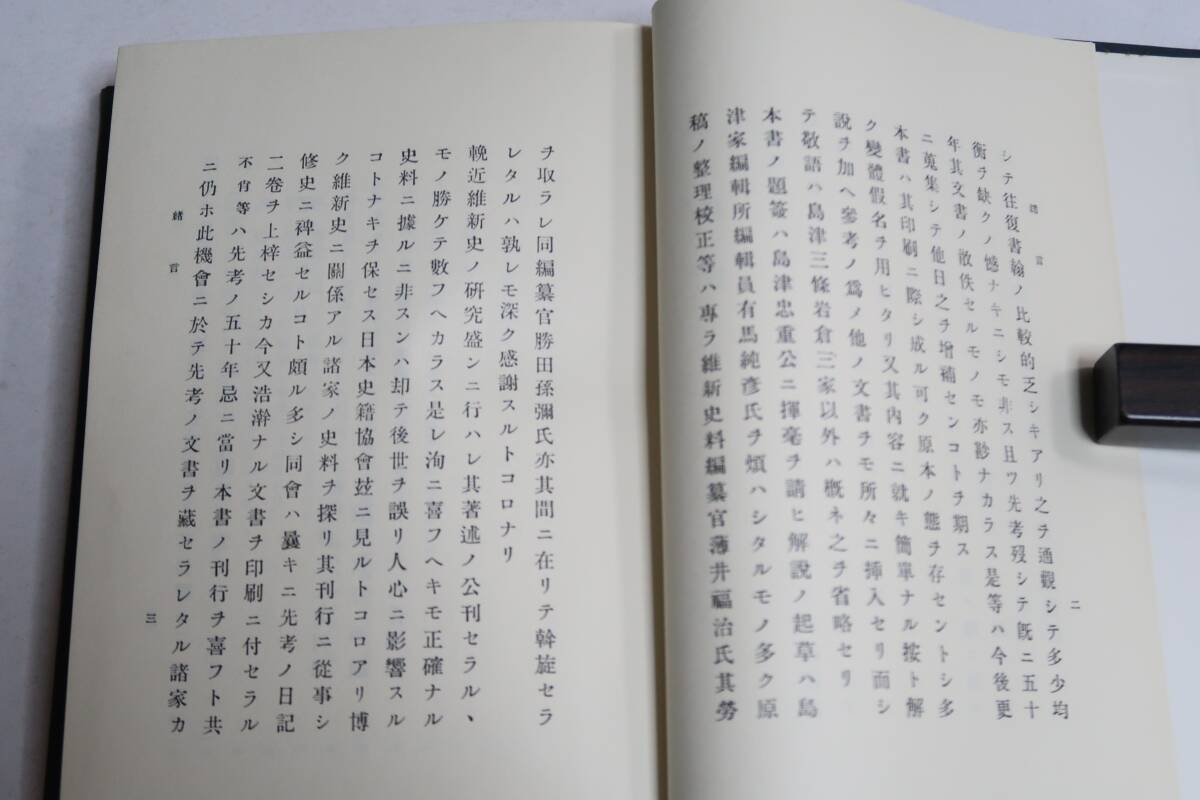 緒言
二
シテ往復書翰ノ比較的乏シキアリ之ヲ通觀シテ多少均
衡ヲ缺クノ憾ナキニシモ非ス且ツ先考歿シテ既ニ五十
年其文書ノ散佚セルモノモ亦尠ナカラス是等ハ今後更
ニ蒐集シテ他日之ヲ增補センコトヲ期ス
本書ハ其印刷ニ際シ成ル可ク原本ノ態ヲ存セントシ多
ク變體假名ヲ用ヒタリ又其內容ニ就キ簡單ナル按ト解
說ヲ加ヘ參考ノ爲メ他ノ文書ヲモ所々ニ挿入セリ而シ
テ敬語ハ島津三條岩倉三家以外ハ概ネ之ヲ省略セリ
本書ノ題簽ハ島津忠重公ニ揮毫ヲ請ヒ解說ノ起草ハ島
津家編輯所編輯員有馬純彥氏ヲ煩ハシタルモノ多ク原
稿ノ整理校正等ハ專ラ維新史料編纂官薄井福治氏其勞
ヲ取ラレ同編纂官勝田孫彌氏亦其間ニ在リテ斡旋セラ
レタルハ孰レモ深ク感謝スルトコロナリ
輓近維新史ノ硏究盛ンニ行ハレ其著述ノ公刊セラルヽ
モノ勝ケテ數フヘカラス是レ洵ニ喜フヘキモ正確ナル
史料ニ據ルニ非スンハ却テ後世ヲ誤リ人心ニ影響スル
コトナキヲ保セス日本史籍協會玆ニ見ルトコロアリ博
ク維新史ニ關係アル諸家ノ史料ヲ探リ其刊行ニ從事シ
修史ニ裨益セルコト頗ル多シ同會ハ曩キニ先考ノ日記
二卷ヲ上梓セシカ今又浩瀚ナル文書ヲ印刷ニ付セラル
不肖等ハ先考ノ五十年忌ニ當リ本書ノ刊行ヲ喜フト共
ニ仍ホ此機會ニ於テ先考ノ文書ヲ藏セラレタル諸家カ
緒言
三